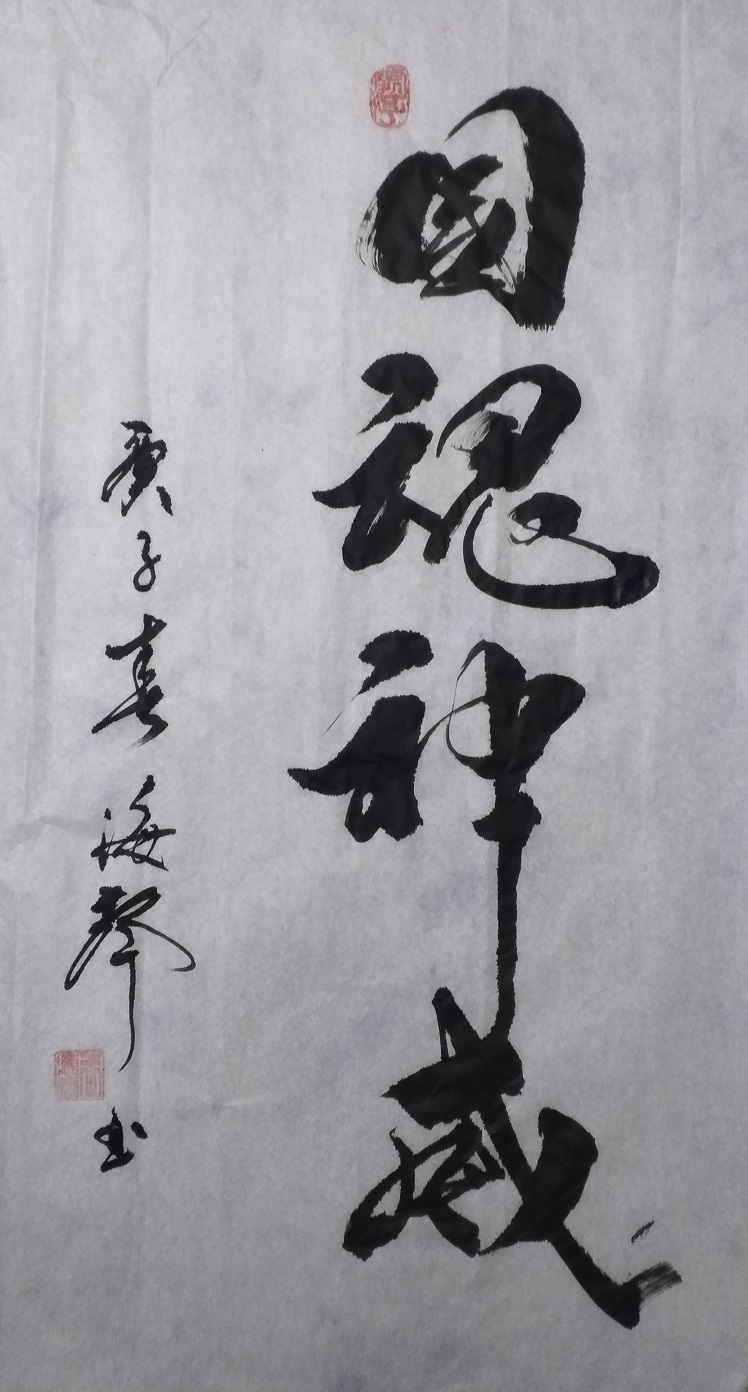 國魂神威
庚子春海聲书